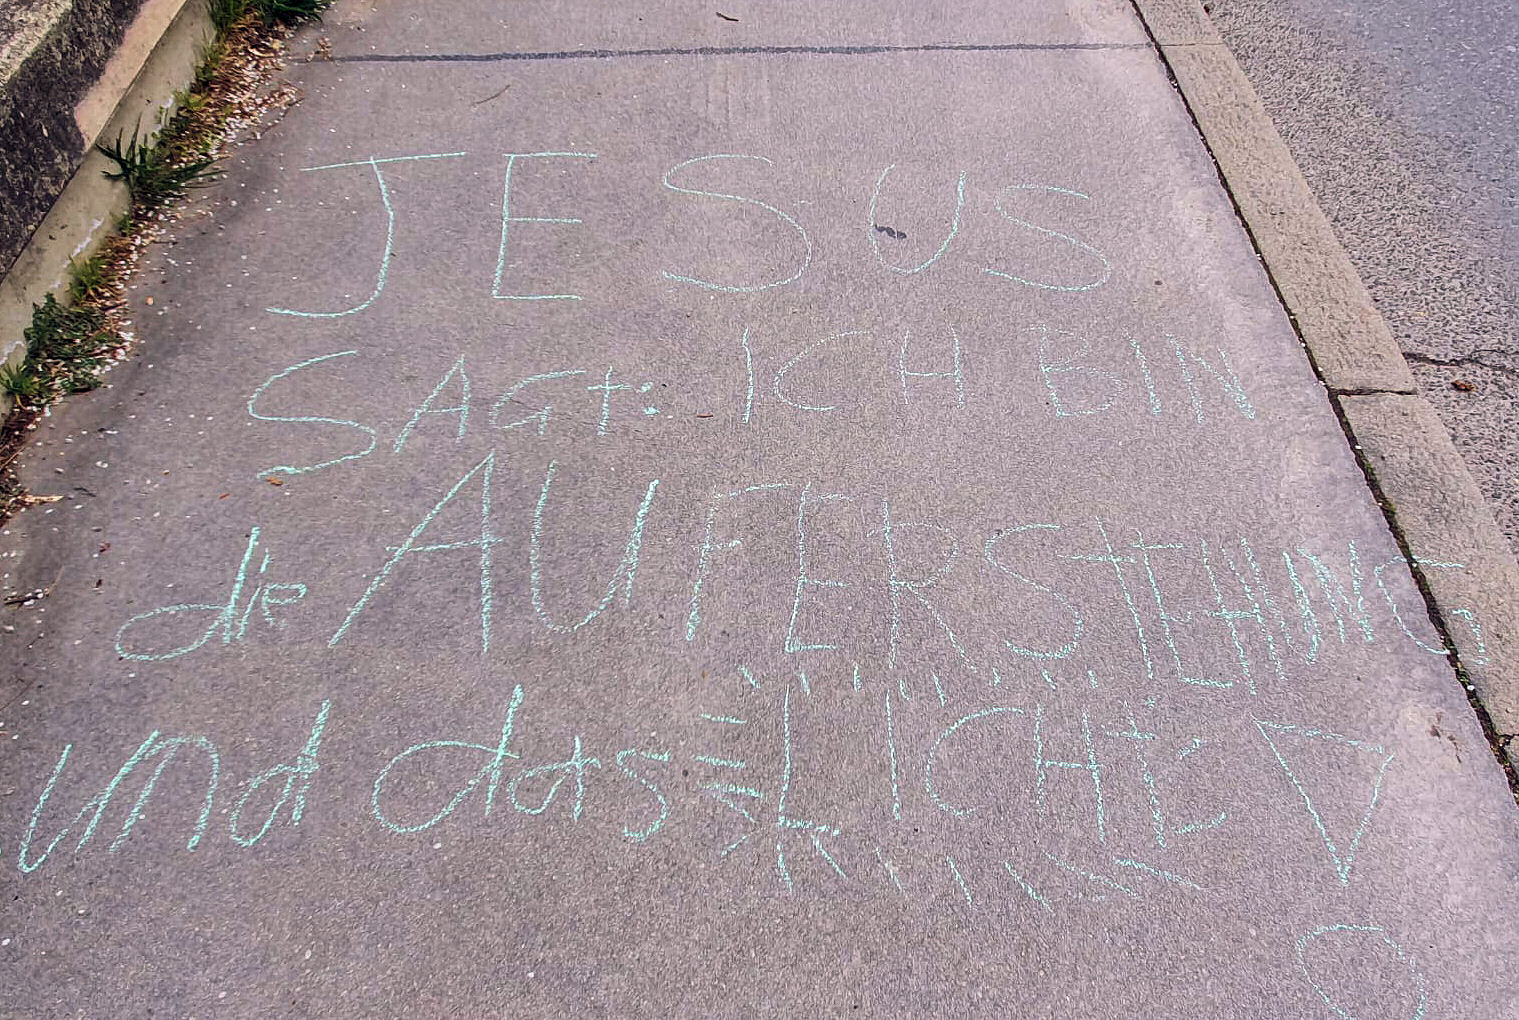 JESUS
SAGt: ICH BIN
die AUFERSTEHUNG
und das LICHt!